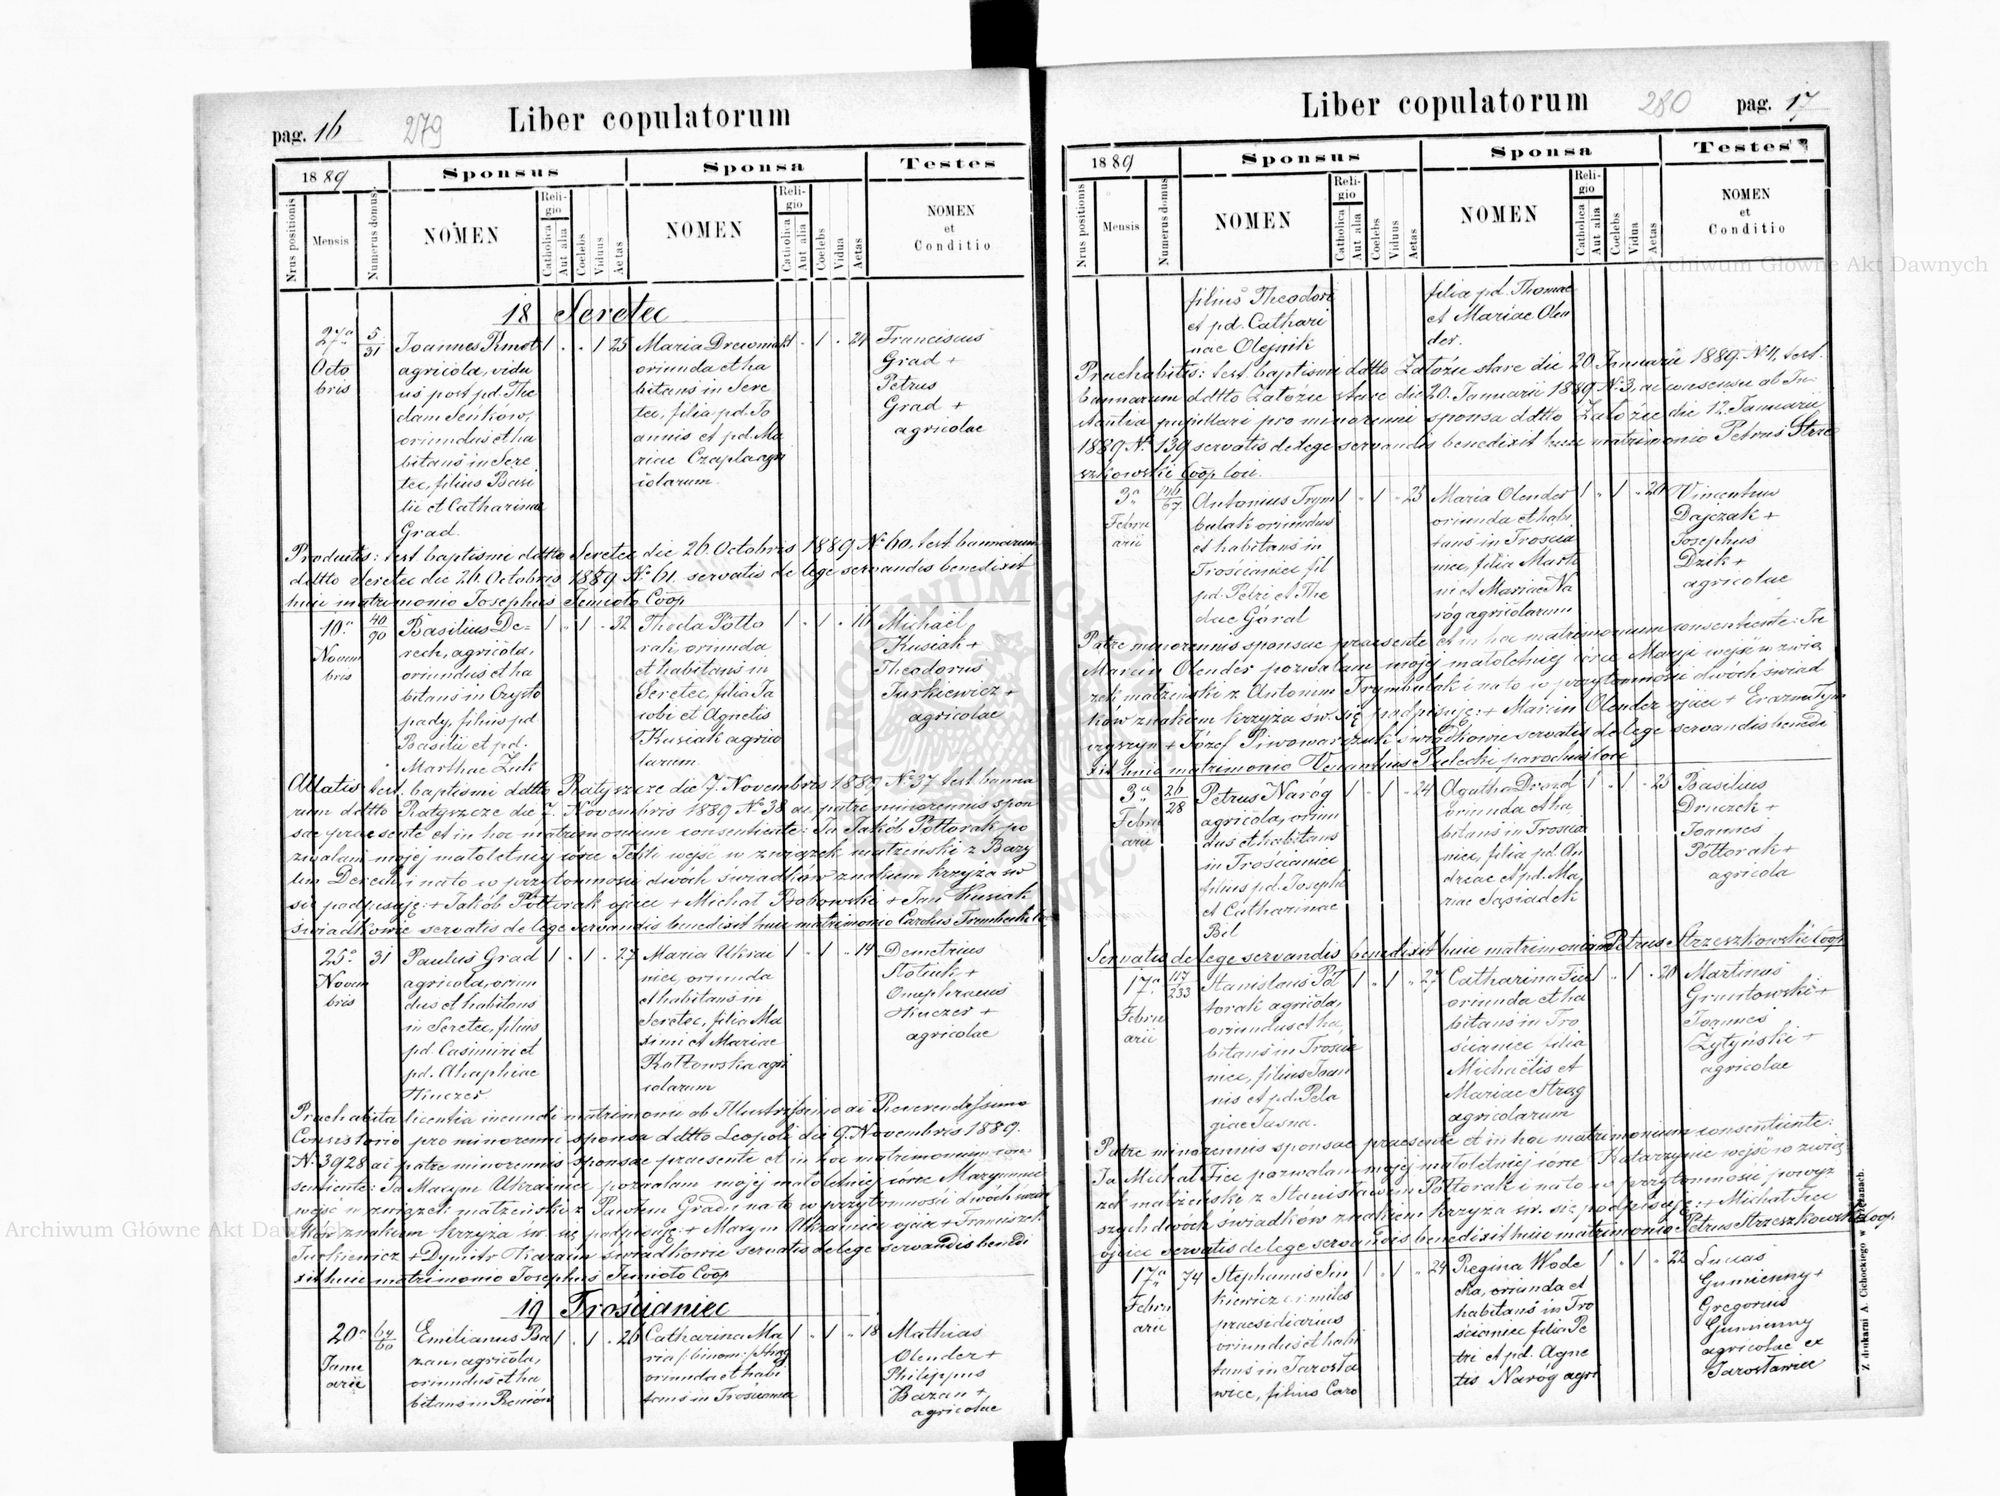 pag. 16
279
Liber copulatorum
1889
Sponsus
Sponsa
Testes
Nrus positionis
Mensis
Numerus domus
NOMEN
Religio
Catholica
Aut alia
Coelebs
Viduus
Aetas
NOMEN
Religio
Catholica
Aut alia
Coelebs
Vidua
Aetas
NOMEN
et
Conditio
18 Seretec
27a
Octo
bris
5
31
Joannes
agricola, vidu
us post pd. The
clam Senkow,
oriundus et ha
bitans in Sere
tec, filius Basi
lii et Catharinae
Grad.
1 . . 1 25
Maria
oriunda et ha
bitans in Sere
tec, filia pd. Jo
annis et pd. Ma
riae Czapla agri
colarum
1 . 1 . 24
Franciscus
Grad +
Petrus
Grad +
agricolae
Productis: test. baptismi ddtto Seretec die 26. Octobris 1889 No 60. test. bannorum
ddtto Seretec die 26. Octobris 1889 No 61. servatis de lege servandis benedixit
huic matrimonio Josephus Coop
10a
Novem
bris
40
90
Basilius De=
rech, agricola,
oriundus et ha
bitans in Czysto
pady, filius pd
Basilii et pd.
Marthae Żuk
1 . 1 . 32
Thecla Połto
rak, oriunda
et habitans in
Seretec, filia Ja
cobi et Agnetis
Kusiak agrico
larum
1 . 1 . 16
Michaël
Kusiak +
Theodorus
Turkiewicz +
agricolae
Allatis test. baptismi ddtto Ratyszcze die 7. Novembris 1889 No 37 test. banno
rum ddtto Ratyszcze die 7. Novembris 1889 No 38 ac patre minorennis spon
sae praesente et in hoc matrimonium consentiente: Ja Jakób Połtorak po
zwalam mojej małoletniej córce Tekli wejść w związek małżeński z Bazy
lim Derech i na to w przytomności dwóch świadków znakiem krzyża św
się podpisuję: + Jakób Połtorak ojciec + Michał Bobowski + Jan Kusiak
świadkowie servatis de lege servandis benedixit huic matrimonio Carolus
25a
Novem
bris
31
Paulus Grad
agricola, oriun
dus et habitans
in Seretec, filius
pd. Casimiri et
pd. Ahaphiae
1 . 1 . 27
Maria Ukrai
niec, oriunda
et habitans in
Seretec, filia Ma
ximi et Mariae
Kołtowska agri
colarum
1 . 1 . 14
Demetrius
Onuphraeus
agricolae
Praehabita licentia ineundi matrimonii ab Illustrissimo ac Reverendissimo
Consistorio pro minorenni sponsa ddtto Leopoli die 9. Novembris 1889.
N. 3928 ac patre minorennis sponsae praesente et in hoc matrimonium con
sentiente: Ja Maxym Ukrainiec pozwalam mojej małoletniej córce Maryannie
wejść w związek małżeński z Pawłem Grad i na to w przytomności dwóch świad
ków znakiem krzyża św. się podpisuję: + Maxym Ukrainiec ojciec + Franciszek
Turkiewicz + Dymitr świadkowie servatis de lege servandis benedi
xit huic matrimonio Josephus Coop
19 Trościaniec
20a
Janu
arii
64
60
Emilianus Ba
zan agricola,
oriundus et ha
bitans in
1 . 1 . 26
Catharina Ma
ria
oriunda et habi
tans in Trościaniec
1 . 1 . 18
Mathias
Olender +
Philippus
Bazan +
agricolae
Liber copulatorum
280
pag. 17
1889
Sponsus
Sponsa
Testes
Nrus positionis
Mensis
Numerus domus
NOMEN
Religio
Catholica
Aut alia
Coelebs
Viduus
Aetas
NOMEN
Religio
Catholica
Aut alia
Coelebs
Vidua
Aetas
NOMEN
et
Conditio
filius Theodori
et pd. Cathari
nae Olejnik
filia pd. Thomae
et Mariae Olen
der.
Praehabitis: test. baptismi ddtto Założce stare die 20 Januarii 1889. No 4, test.
bannorum ddtto Założce stare die 20. Januarii 1889 No 3, ac consensu ab In
stantia pupillari pro minorenni sponsa ddtto Założce die 12. Januarii
1889 No 139 servatis de lege servandis benedixit huic matrimonio Petrus Strze
szkowski Coop loci.
3a
Febru
arii
146
67
Antonius Trym
bulak oriundus
et habitans in
Trościaniec fil
pd. Petri et The
clae Góral
1 . 1 . 25
Maria Olender
oriunda et habi
tans in Troscia
niec, filia Marti
ni et Mariae Na
róg agricolarum
1 . 1 . 20
Vincentius
Dajczak +
Josephus
Dzik +
agricolae
Patre minorennis sponsae praesente et in hoc matrimonium consentiente: Ja
Marcin Olender pozwalam mojej małoletniej córce Maryi wejść w zwią
zek małżeński z Antonim Trymbulak i na to w przytomności dwóch świad
ków znakiem krzyża św. się podpisuję: + Marcin Olender ojciec +
+ Józef Piwowarczuk świadkowie servatis de lege servandis benedi
xit huic matrimonio Venantius parochus loci
3a
Febru
arii
26
28
Petrus Naróg
agricola, oriun
dus et habitans
in Trościaniec
filius pd. Josephi
et Catharinae
Bil
1 . 1 . 24
Agatha
oriunda et ha
bitans in Troscia
niec, filia pd. An
dreae et pd. Ma
riae Sąsiadek
1 . 1 . 25
Basilius
Druczek +
Joannes
Połtorak +
agricola
Servatis de lege servandis benedixit huic matrimonio Petrus Strzeszkowski Coop
17a
Febru
arii
117
233
Stanislaus Poł
torak agricola,
oriundus et ha
bitans in Trościa
niec, filius Joan
nis et pd. Pela
giae Jasna.
1 . 1 . 27
Catharina Fica
oriunda et ha
bitans in Tro
ścianiec filia
Michaëlis et
Mariae
agricolarum
1 . 1 . 20
Martinus
Gruntowski +
Joannes
Żytyński +
agricolae
Patre minorennis sponsae praesente et in hoc matrimonium consentiente:
Ja Michał Fica pozwalam mojej małoletniej córce Katarzynie wejść w zwią
zek małżeński z Stanisławem Połtorak i na to w przytomności powyż
szych dwóch świadków znakiem krzyża św. się podpisuję: + Michał Fica
ojciec servatis de lege servandis benedixit huic matrimonio Petrus Strzeszkowski Coop
17a
Febru
arii
74
Stephanus Sin
kiewicz miles
praesidiarius
oriundus et habi
tans in Jarosła
wiec, filius Caro
1 . 1 . 24
Regina Wode
cka, oriunda et
habitans in Tro
ścianiec filia Pe
tri et pd. Agne
tis Naróg agri
1 . 1 . 22
Lucas
Gumienny +
Gregorius
Gumienny
agricolae ex
Jarosławiec
Z drukarni A. Cichockiego w Brzeżanach.
Archiwum Główne Akt Dawnych
Archiwum Główne Akt Dawnych